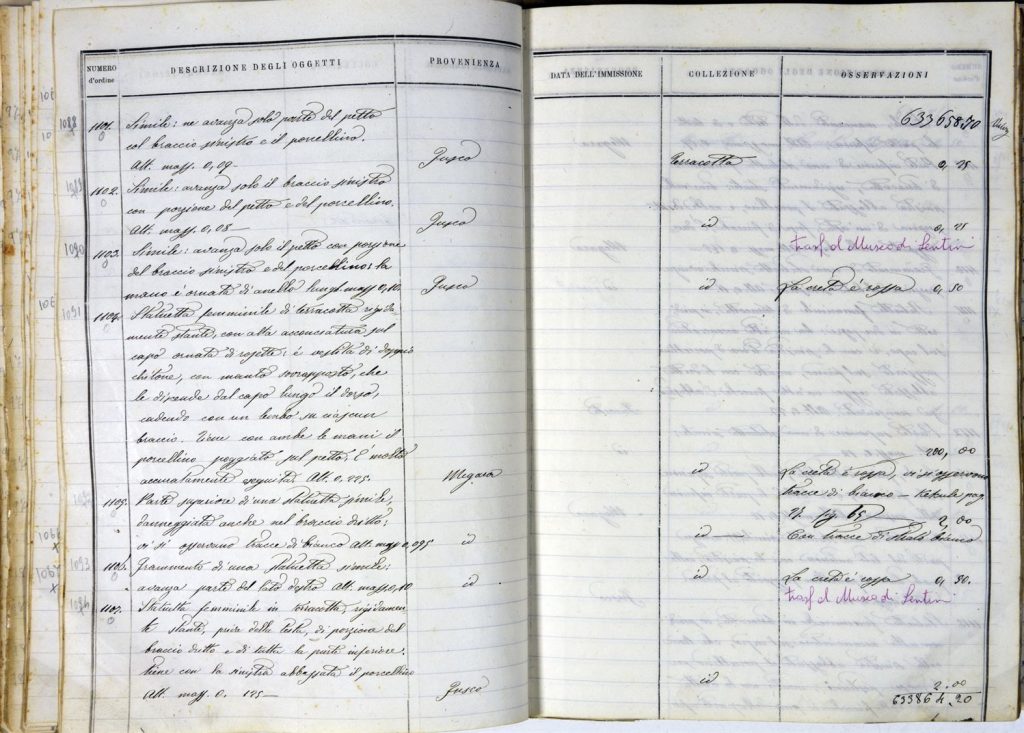 NUMERO d'ordine
DESCRIZIONE DEGLI OGGETTI
PROVENIENZA
1088
1101. Simile: ne avanza solo parte del petto
col braccio sinistro e il porcellino.
Alt. mass. 0,09. Fusco
1102. Simile: avanza solo il braccio sinistro
con porzione del petto e del porcellino.
Alt. mass. 0,08 — Fusco
1090
1103. Simile: avanza solo il petto con porzione
del braccio sinistro e del porcellino; la
mano è ornata di anello lungh. mass 0,10. Fusco
1091
1104. Statuetta femminile di terracotta rigida-
mente stante, con alta acconciatura sul
capo ornata di rosette: è vestita di doppio
chitone, con manto sovrapposto, che
le discende dal capo lungo il dorso,
cadendo con un lembo su ciascun
braccio. Tiene con ambe le mani il
porcellino poggiato sul petto; È molto
accuratamente eseguita. Alt. 0,225. Megara
1105. Parte superiore di una statuetta simile;
danneggiata anche nel braccio dritto;
vi si osservano tracce di bianco Alt. mass 0,095 id
1093
1106. Frammento di una statuetta simile:
avanza parte del lato destro Alt. mass. 0,10 id
1107. Statuetta femminile in terracotta rigidamen-
te stante, priva della testa, di porzione del
braccio dritto e di tutta la parte inferiore.
tiene con la sinistra abbassata il porcellino
Alt. mass. 0. 125 — Fusco
DATA DELL'IMMISSIONE
COLLEZIONE
OSSERVAZIONI
633658.70
terracotta 0, 25
id 0, 25
trasf. al Museo di Lentini
id La creta è rossa 0, 50
200, 00
id La creta è rossa, vi si osservano
tracce di bianco — Kekulé pag.
fig. 65 2, 00
id — Con tracce di bianco
id La creta è rossa 0, 50.
trasf. al Museo di Lentini
id 2.00
633864.20